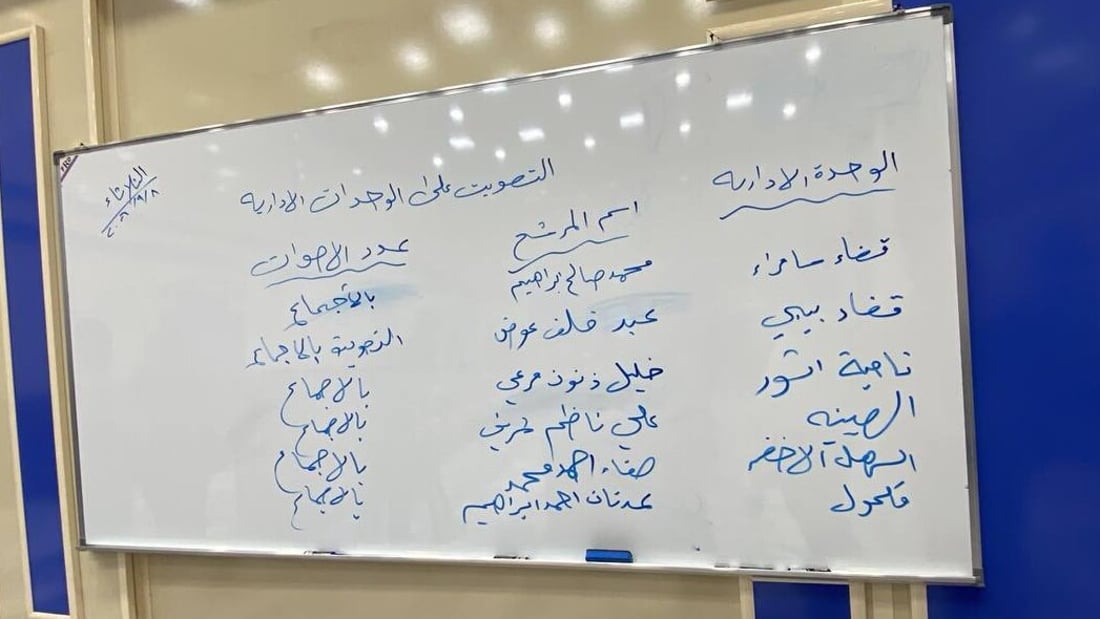 الثلاثاء
التصويت على الوحدات الادارية
الوحدة الادارية اسم المرشح عدد الاصوات
قضاء سامراء محمد صالح ابراهيم بالأجماع
قضاء بيجي عبد خلف عواض التصويت بالاجماع
ناحية اشور خليل ذنون مرعي بالاجماع
الصينيه علي ناظم بالاجماع
السهل الاخضر صفاء احمد محمد بالاجماع
مكحول عدنان احمد ابراهيم بالاجماع